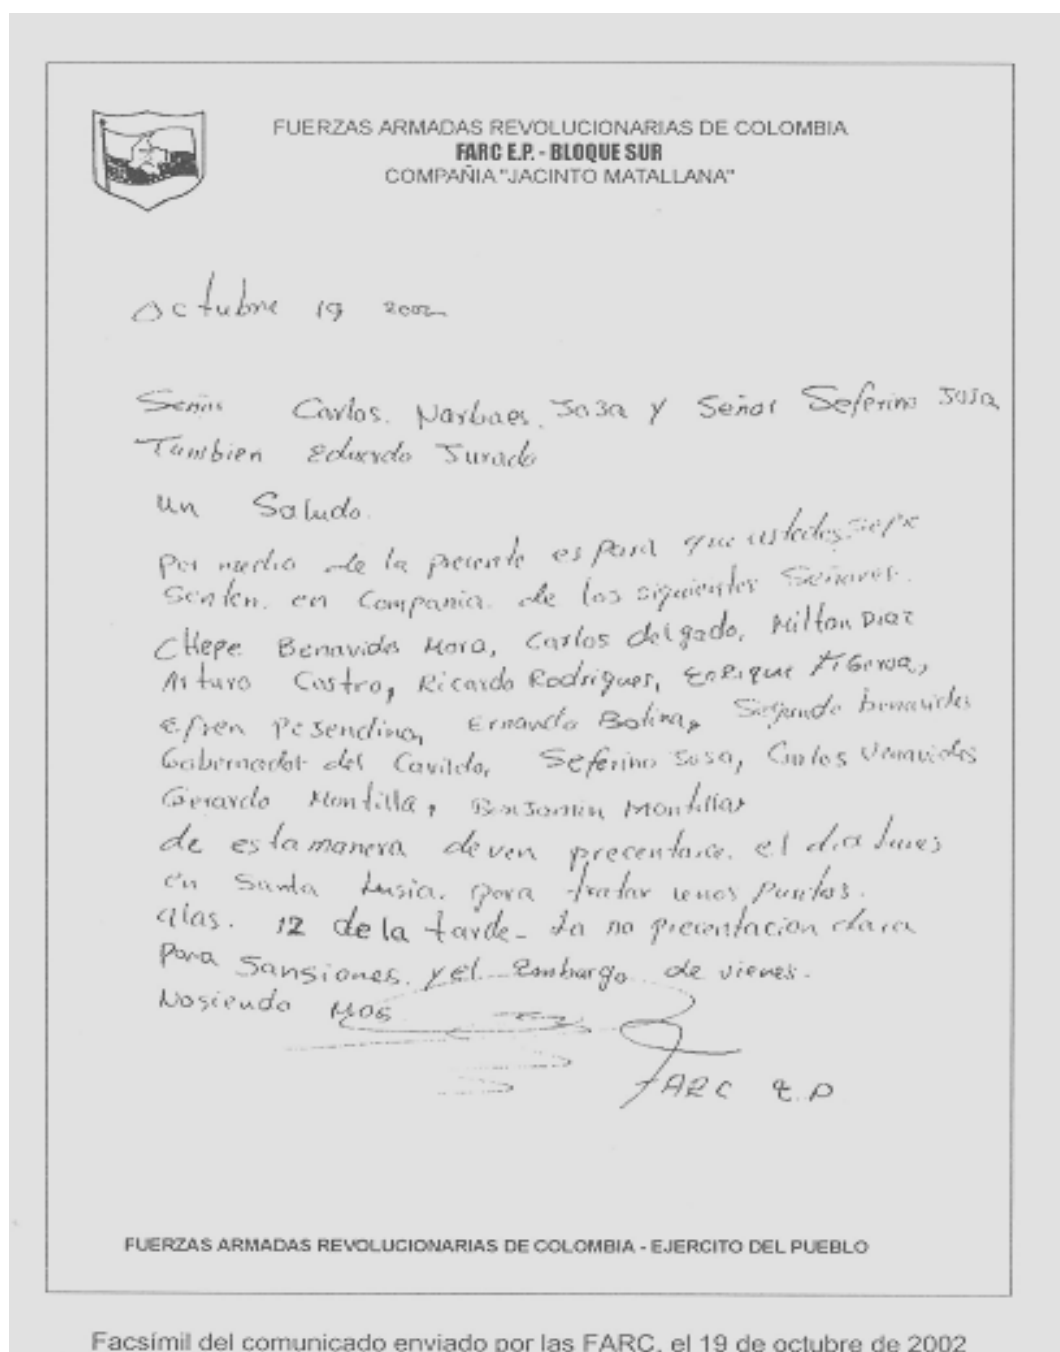 FUERZAS ARMADAS REVOLUCIONARIAS DE COLOMBIA
FARC E.P. - BLOQUE SUR
COMPAÑIA "JACINTO MATALLANA"
Octubre 19 2002
Señor Carlos. Narbaes. JoJa y Señor Seferino JoJa
Tambien Eduardo Jurado
un Saludo.
Por medio de la precente es para que ustedes se
Senten. en Compania. de los siguientes Señores.
CHepe Benavides Mora, Carlos delgado, Milton Diaz
Arturo Castro, Ricardo Rodrigues, Enrique Figeroa,
Efren Pesendino, Ernando Bolina, Segundo benavides
Gobernador del Cavildo, Seferino JoJa, Carlos Venavides
Gerardo Montilla, BenJamin Montilla
de esta manera deven precentarce. el dia lunes
en Santa Lusia. para tratar unos Puntos.
alas. 12 de la tarde - La no precentacion dara
Para Sansiones. y el Embargo de vienes.
Nosiendo Mas
FARC E.P
FUERZAS ARMADAS REVOLUCIONARIAS DE COLOMBIA - EJERCITO DEL PUEBLO
Facsímil del comunicado enviado por las FARC, el 19 de octubre de 2002